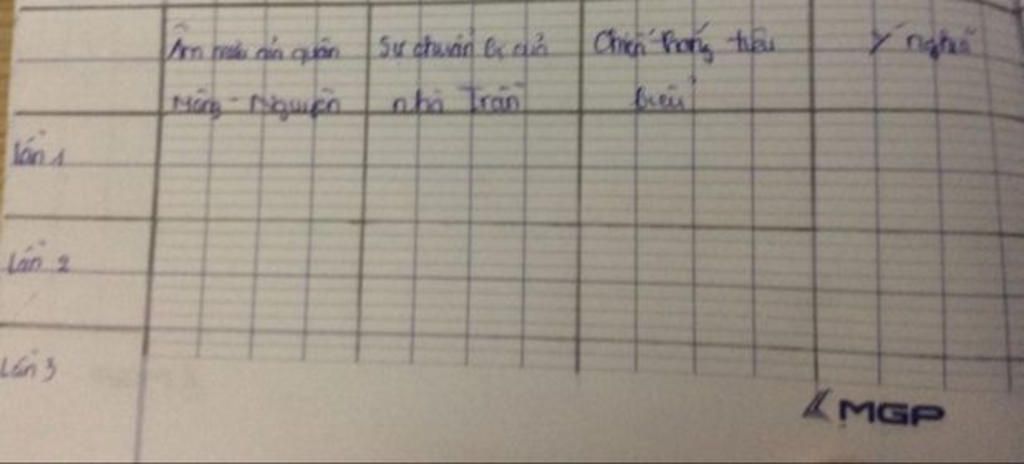 Âm mưu của quân
Mông - Nguyên
Sự chuẩn bị của
nhà Trần
Chiến thắng tiêu
biểu
Ý nghĩa
Lần 1
Lần 2
Lần 3
MGP